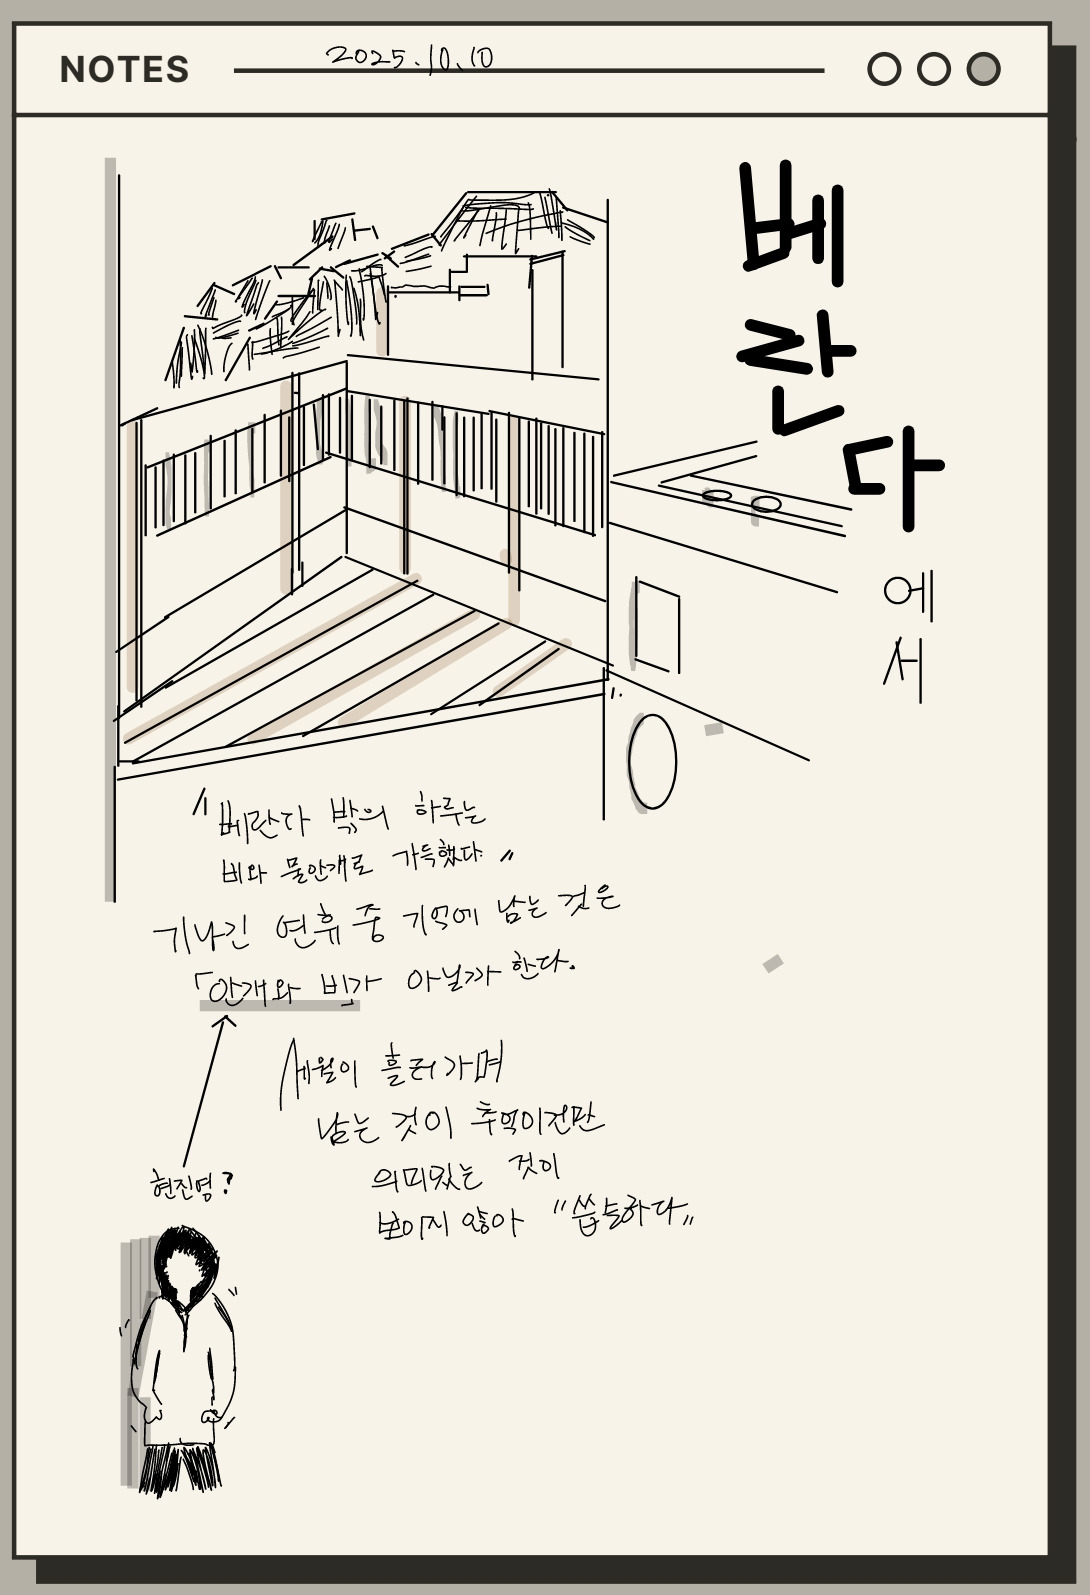 NOTES
2025.10.10
베란다
에서
"베란다 밖의 하루는
비와 물안개로 가득했다"
기나긴 연휴 중 기억에 남는 것은
「안개와 비」가 아닐까 한다.
세월이 흘러가며
남는 것이 추억이건만
의미있는 것이
보이지 않아 "씁슬하다"
현진영?